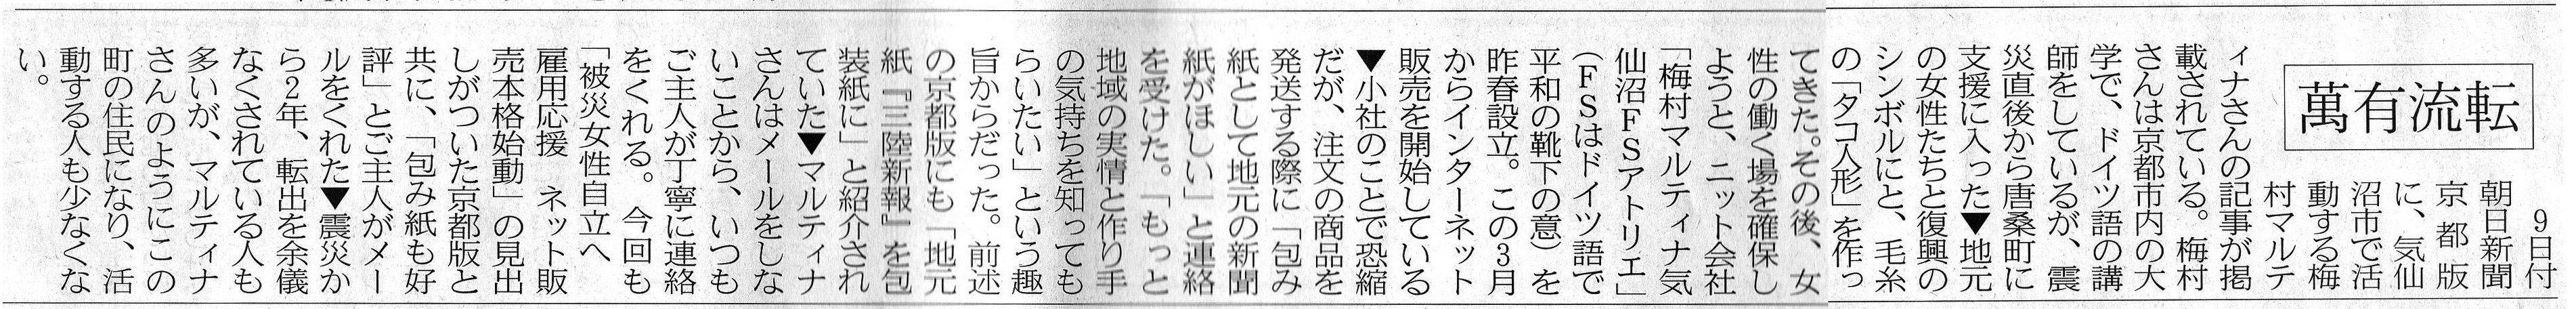 萬有流転
9日付
朝日新聞
京都版
に、気仙
沼市で活
動する梅
村マルテ
ィナさんの記事が掲
載されている。梅村
さんは京都市内の大
学で、ドイツ語の講
師をしているが、震
災直後から唐桑町に
支援に入った▼地元
の女性たちと復興の
シンボルにと、毛糸
の「タコ人形」を作っ
てきた。その後、女
性の働く場を確保し
ようと、ニット会社
「梅村マルティナ気
仙沼FSアトリエ」
（FSはドイツ語で
平和の靴下の意）を
昨春設立。この3月
からインターネット
販売を開始している
▼小社のことで恐縮
だが、注文の商品を
発送する際に「包み
紙として地元の新聞
紙がほしい」と連絡
を受けた。「もっと
地域の実情と作り手
の気持ちを知っても
らいたい」という趣
旨からだった。前述
の京都版にも「地元
紙『三陸新報』を包
装紙に」と紹介され
ていた▼マルティナ
さんはメールをしな
いことから、いつも
ご主人が丁寧に連絡
をくれる。今回も
「被災女性自立へ
雇用応援　ネット販
売本格始動」の見出
しがついた京都版と
共に、「包み紙も好
評」とご主人がメー
ルをくれた▼震災か
ら2年、転出を余儀
なくされている人も
多いが、マルティナ
さんのようにこの
町の住民になり、活
動する人も少なくな
い。